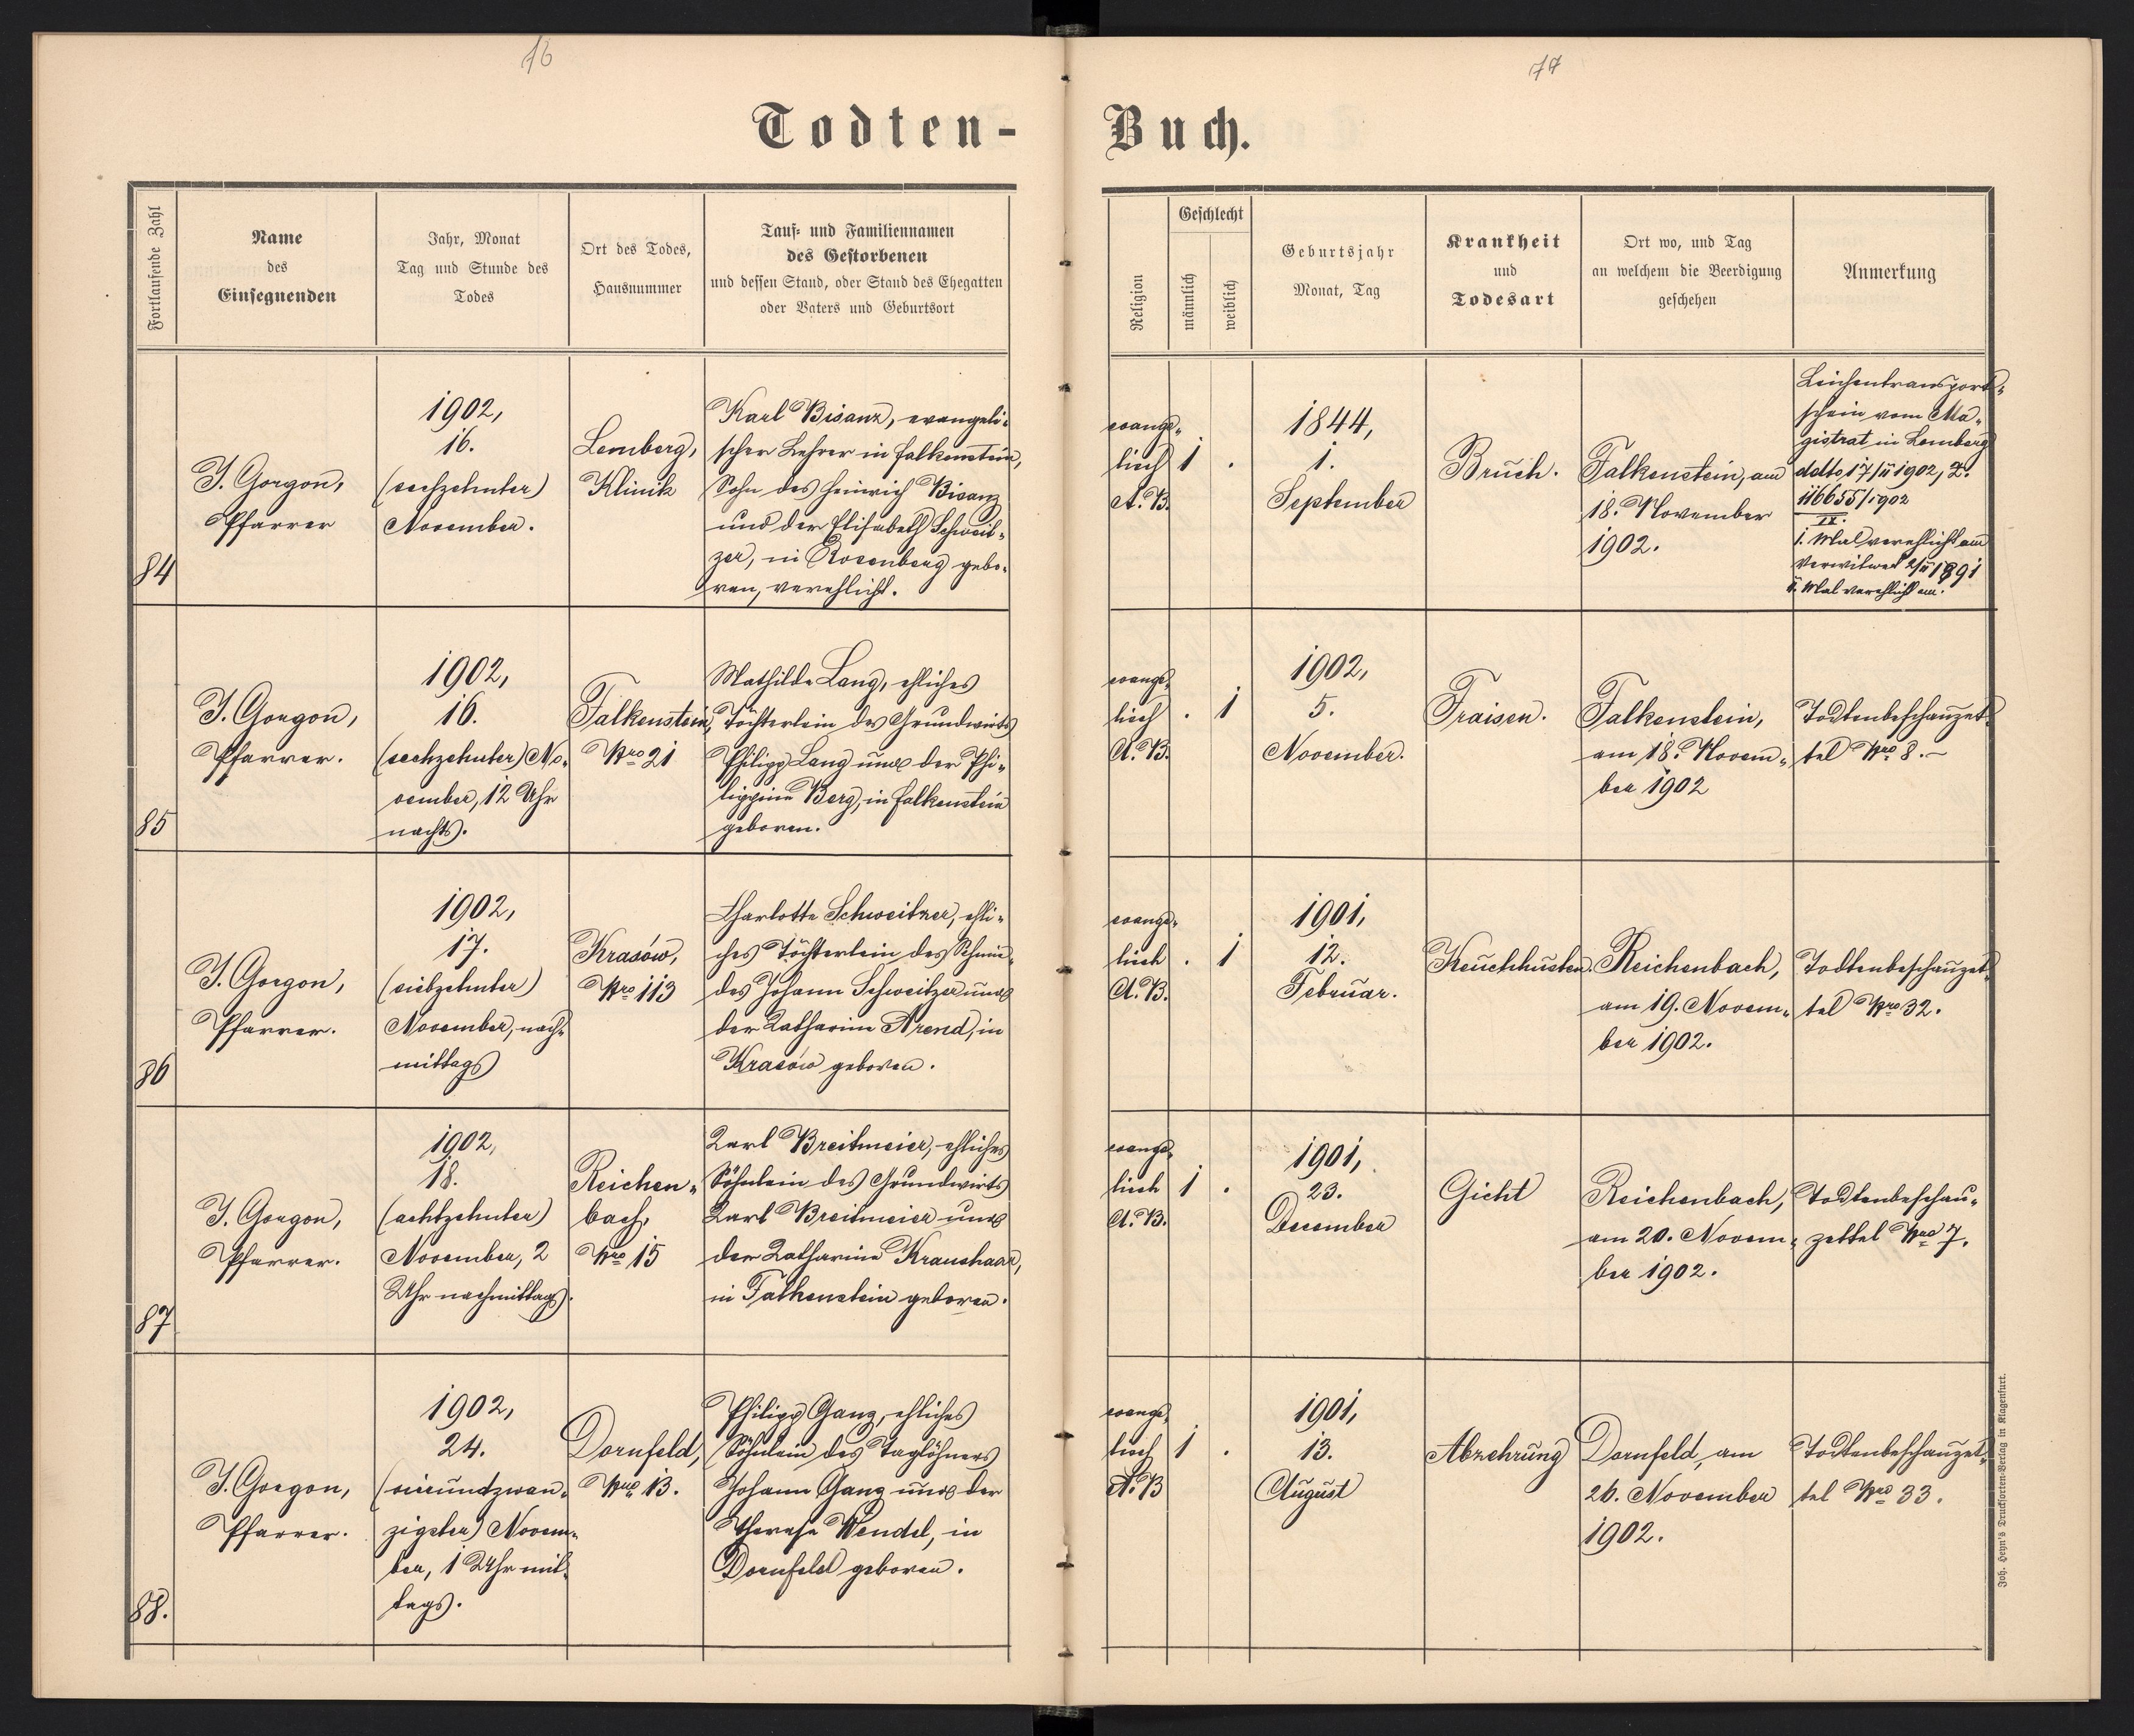 16
77
Todten-
Buch.
Fortlaufende Zahl
Name
des
Einsegnenden
Jahr, Monat
Tag und Stunde des
Todes
Ort des Todes,
Hausnummer
Tauf- und Familiennamen
des Gestorbenen
und dessen Stand, oder Stand des Ehegatten
oder Vaters und Geburtsort
Religion
Geschlecht
männlich
weiblich
Geburtsjahr
Monat, Tag
Krankheit
und
Todesart
Ort wo, und Tag
an welchem die Beerdigung
geschehen
Anmerkung
84
J. Gorgon,
Pfarrer
1902,
16.
(sechzehnter)
November.
Lemberg,
Klinik
Karl Bisanz, evangeli-
scher Lehrer in Falkenstein,
Sohn des Heinrich Bisanz
und der Elisabeth Schweit-
zer, in Rosenberg gebo-
ren, verehlicht.
evange-
lisch
A. B.
1
.
1844,
1.
September
Bruch.
Falkenstein, am
18. November
1902.
Leichentransport-
schein vom Ma-
gistrat in Lemberg
ddto 17/11 1902, Z.
116655/1902
II.
1. Mal verehlicht am
Verwitwet 2/11 1891
2. Mal verehlicht am.
85
J. Gorgon,
Pfarrer.
1902,
16.
(sechzehnter) No-
vember, 12 Uhr
nachts.
Falkenstein,
Nro 21
Mathilde Lang, ehliches
Töchterlein des Grundwirts
Philipp Lang und der Phi-
lippine Berg, in Falkenstein
geboren.
evange-
lisch
A. B.
.
1
1902,
5.
November.
Fraisen.
Falkenstein,
am 18. Novem-
ber 1902
Todtenbeschauzet-
tel Nro 8.-
86
J. Gorgon,
Pfarrer.
1902,
17.
(siebzehnter)
November, nach-
mittags
Krasów,
Nro 113
Charlotte Schweitzer, ehli-
ches Töchterlein des Schmie-
des Johann Schweitzer und
der Katharina Arend, in
Krasów geboren.
evange-
lisch
A. B.
.
1
1901,
12.
Februar.
Keuchhusten.
Reichenbach,
am 19. Novem-
ber 1902.
Todtenbeschauzet-
tel Nro 32.
87
J. Gorgon,
Pfarrer.
1902,
18.
(achtzehnter)
November, 2
Uhr nachmittags.
Reichen-
bach,
Nro 15
Karl Breitmeier, ehliches
Söhnlein des Grundwirts
Karl Breitmeier und
der Katharina Kraushaar,
in Falkenstein geboren.
evange-
lisch
A. B.
1
.
1901,
23.
December
Gicht
Reichenbach,
am 20. Novem-
ber 1902.
Todtenbeschau-
zettel Nro 7.
88.
J. Gorgon,
Pfarrer.
1902,
24.
(vierundzwan-
zigster) Novem-
ber, 1 Uhr mit-
tags.
Dornfeld,
Nro 13.
Philipp Ganz, ehliches
Söhnlein des Taglöhners
Johann Ganz und der
Therese Wendel, in
Dornfeld geboren.
evange-
lisch
A. B
1
.
1901,
13.
August
Abzehrung
Dornfeld, am
26. November
1902.
Todtenbeschauzet-
tel Nro 33.
Joh. Heyn's Drucksorten-Verlag in Klagenfurt.